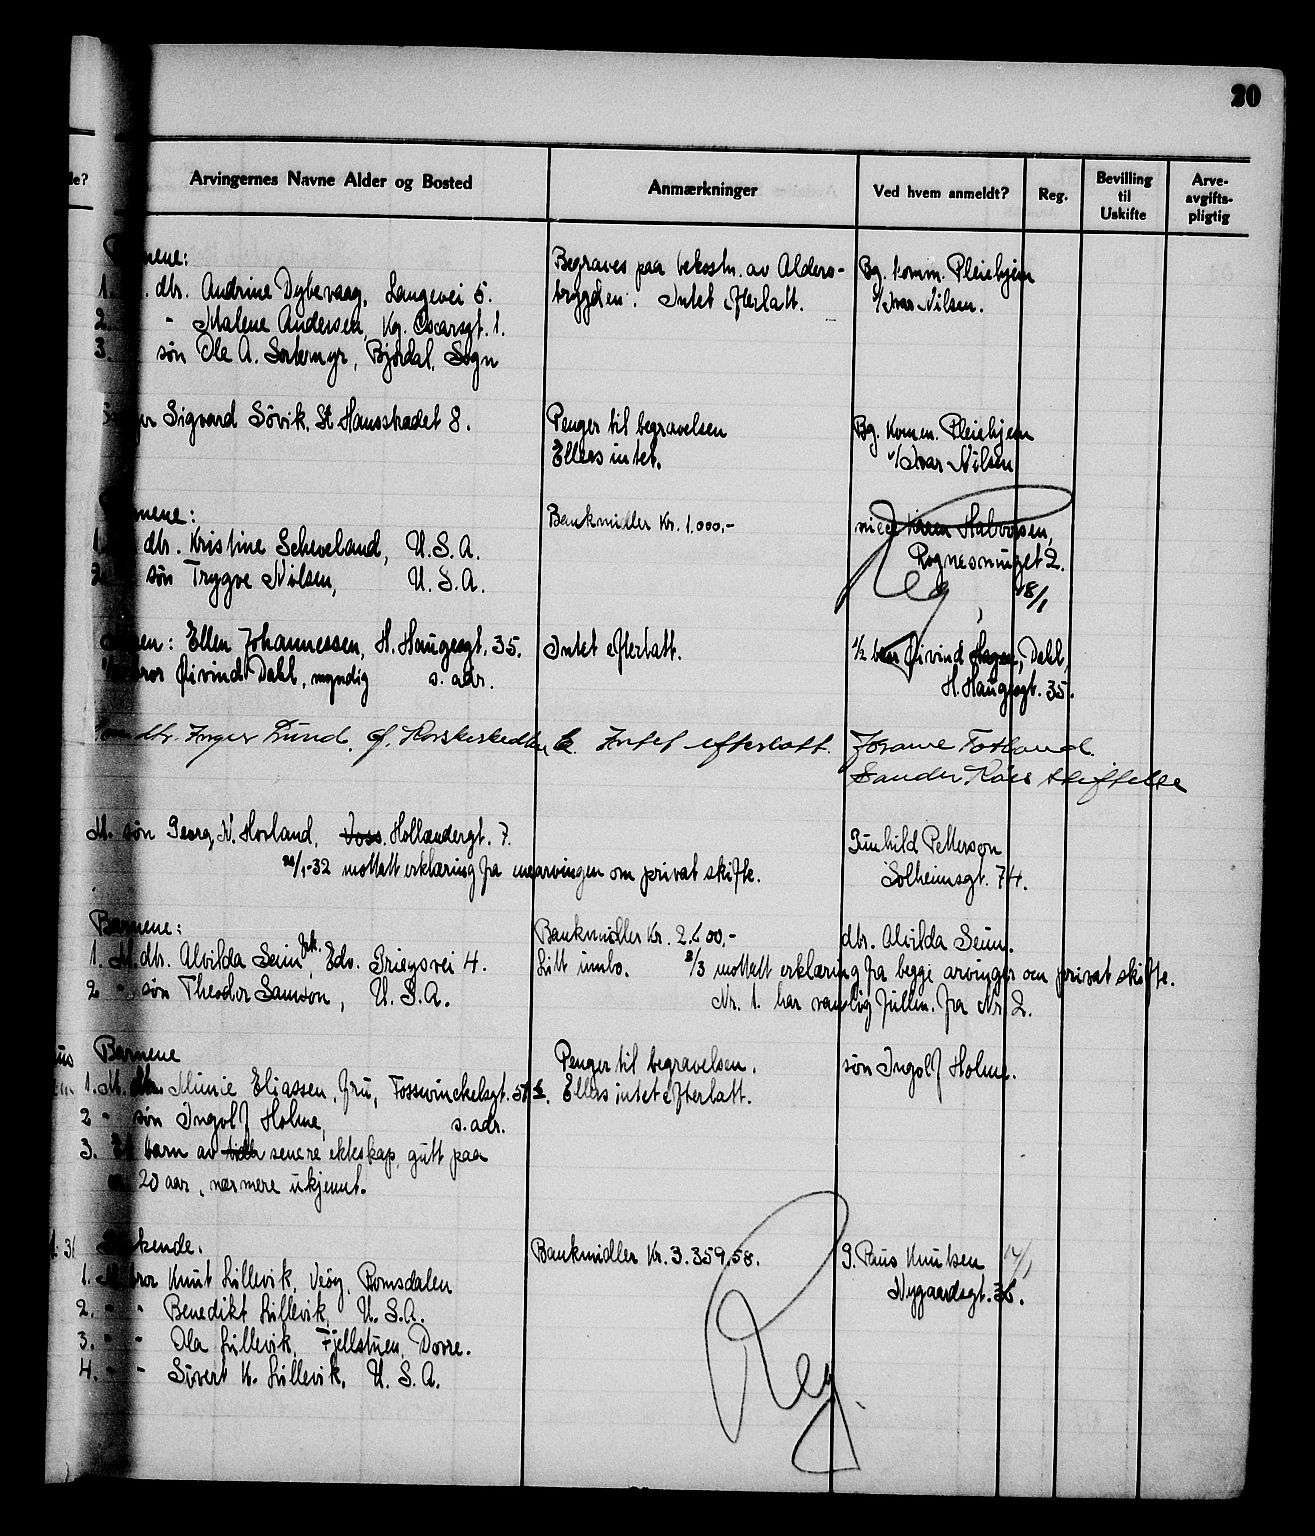 20
de?
Arvingernes Navne Alder og Bosted
Anmærkninger
Ved hvem anmeldt?
Reg.
Bevilling til Uskifte
Arve-avgifts-pligtig
nene:
1. dtr. Andrine Dybevaag, Langevei 5.
2. " Malene Andersen, Kg. Oscarsgt. 1.
3. søn Ole A. Sortemyr, Bjordal, Sogn
Begraves paa bekostn. av Alders-
trygden. Intet efterlatt.
Bg. komm. Pleiehjem
v/Ivar Nilsen.
Sigvard Sövik, St Hansstradet 8.
Penger til begravelsen
Ellers intet.
Bg. Komm. Pleiehjem
v/Ivar Nilsen
nene:
1. dtr. Kristine Scheveland, U.S.A.
2. søn Trygve Nilsen, U.S.A.
Bankmidler Kr. 1.000,-
niece Karen Halvorsen,
Rognesmuget 2.
Reg 18/1
Ellen Johannessen, H. Haugesgt. 35.
bror Øivind Dahl, myndig s. adr.
Intet efterlatt.
1/2 bror Øivind Hagen, Dahl,
H. Haugesgt. 35.
dtr. Inger Lund,
Intet efterlatt.
Totland
Sander Kaaes stiftelse
M. søn Georg N. Hovland, Voss. Hollændergt. 7.
20/1-32 mottatt erklæring fra enearvingen om privat skifte.
Gunhild Petterson
Solheimsgt. 74.
Barnene:
1. M. dtr. Alvilda Seim frk. Edv. Griegsvei 4.
2 " søn Theodor Samson, U.S.A.
Bankmidler Kr. 2.600,-
Litt innbo.
dtr. Alvilda Seim.
2/3 mottatt erklæring fra begge arvinger om privat skifte.
Nr. 1. har vanlig fullm. fra Nr. 2.
Barnene
1. M. dtr. Minie Eliassen, fru, Fosswinckelsgt.
2 " søn Ingolf Holme, s. adr.
3. Et barn av senere ekteskap, gutt paa
20 aar, nærmere ukjennt.
Penger til begravelsen.
Ellers intet efterlatt.
søn Ingolf Holme.
Søskende.
1. M. bror Knut Lillevik, Veöy, Romsdalen
2. " " Benedikt Lillevik, U.S.A.
3. " " Ola Lillevik, Fjellstuen, Dovre.
4. " " Sivert K. Lillevik, U.S.A.
Bankmidler Kr. 3.359,58.
Reg.
Knutsen
Nygaardsgt. 36.